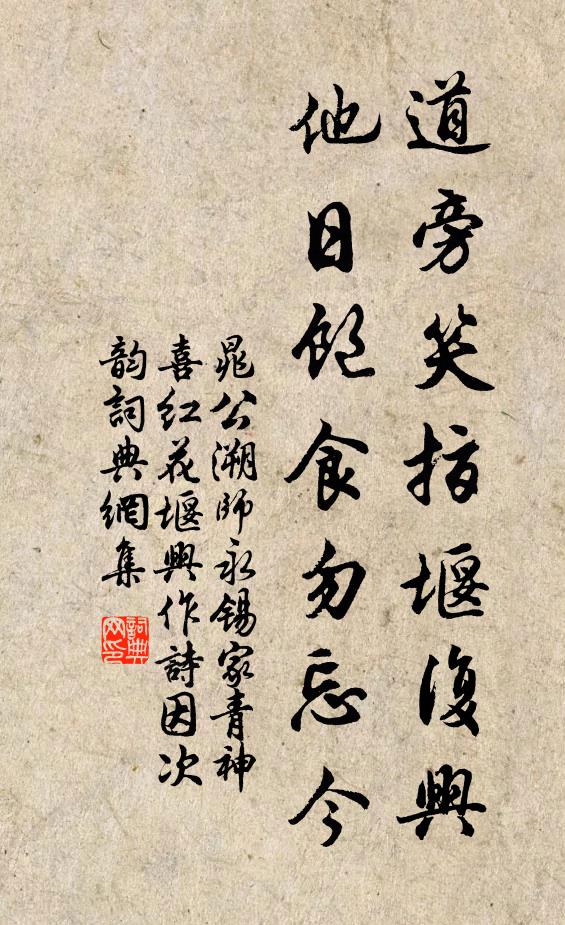 道旁笑指堰復興
他日飽食勿忘今
晁公溯師永錫家青神
喜紅花堰興作詩因次
韵詞典網集
詞典
网印